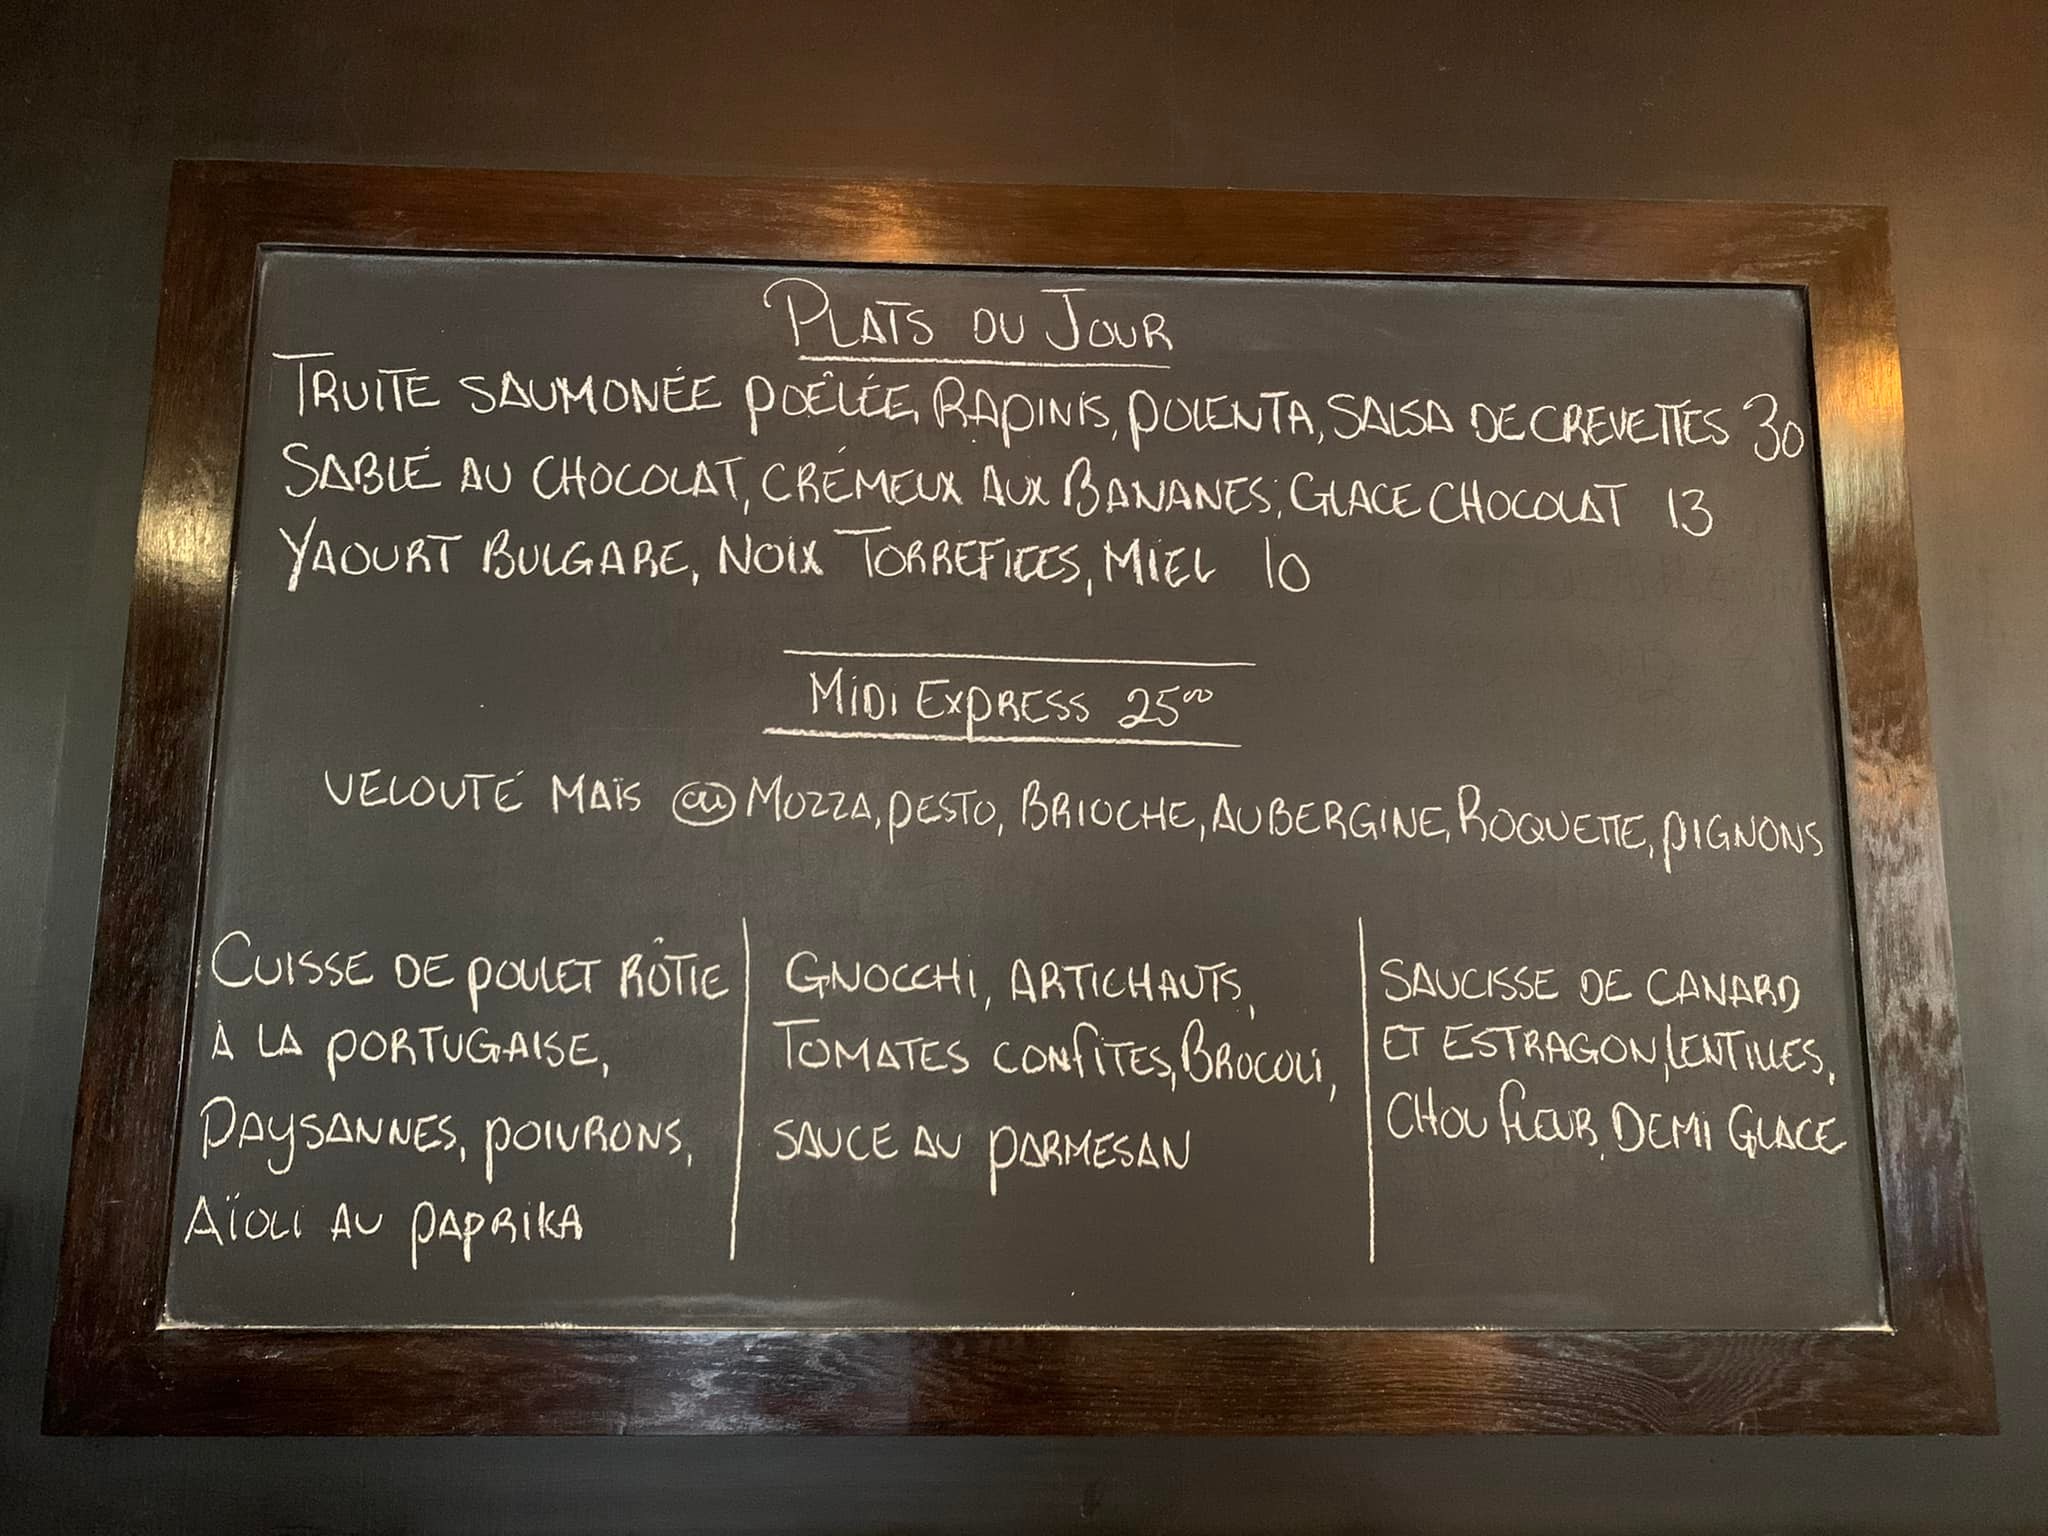 Plats du Jour
Truite saumonée poêlée, Rapinis, polenta, salsa de crevettes 30
Sablé au chocolat, crémeux aux Bananes, Glace chocolat 13
Yaourt Bulgare, Noix Torréfiées, Miel 10
Midi Express 25⁰⁰
Velouté Maïs ou Mozza, pesto, Brioche, Aubergine, Roquette, pignons
Cuisse de poulet rôtie
à la portugaise,
Paysannes, poivrons,
Aïoli au paprika
Gnocchi, artichauts,
Tomates confites, Brocoli,
sauce au parmesan
Saucisse de canard
et estragon, lentilles,
chou fleur, Demi Glace